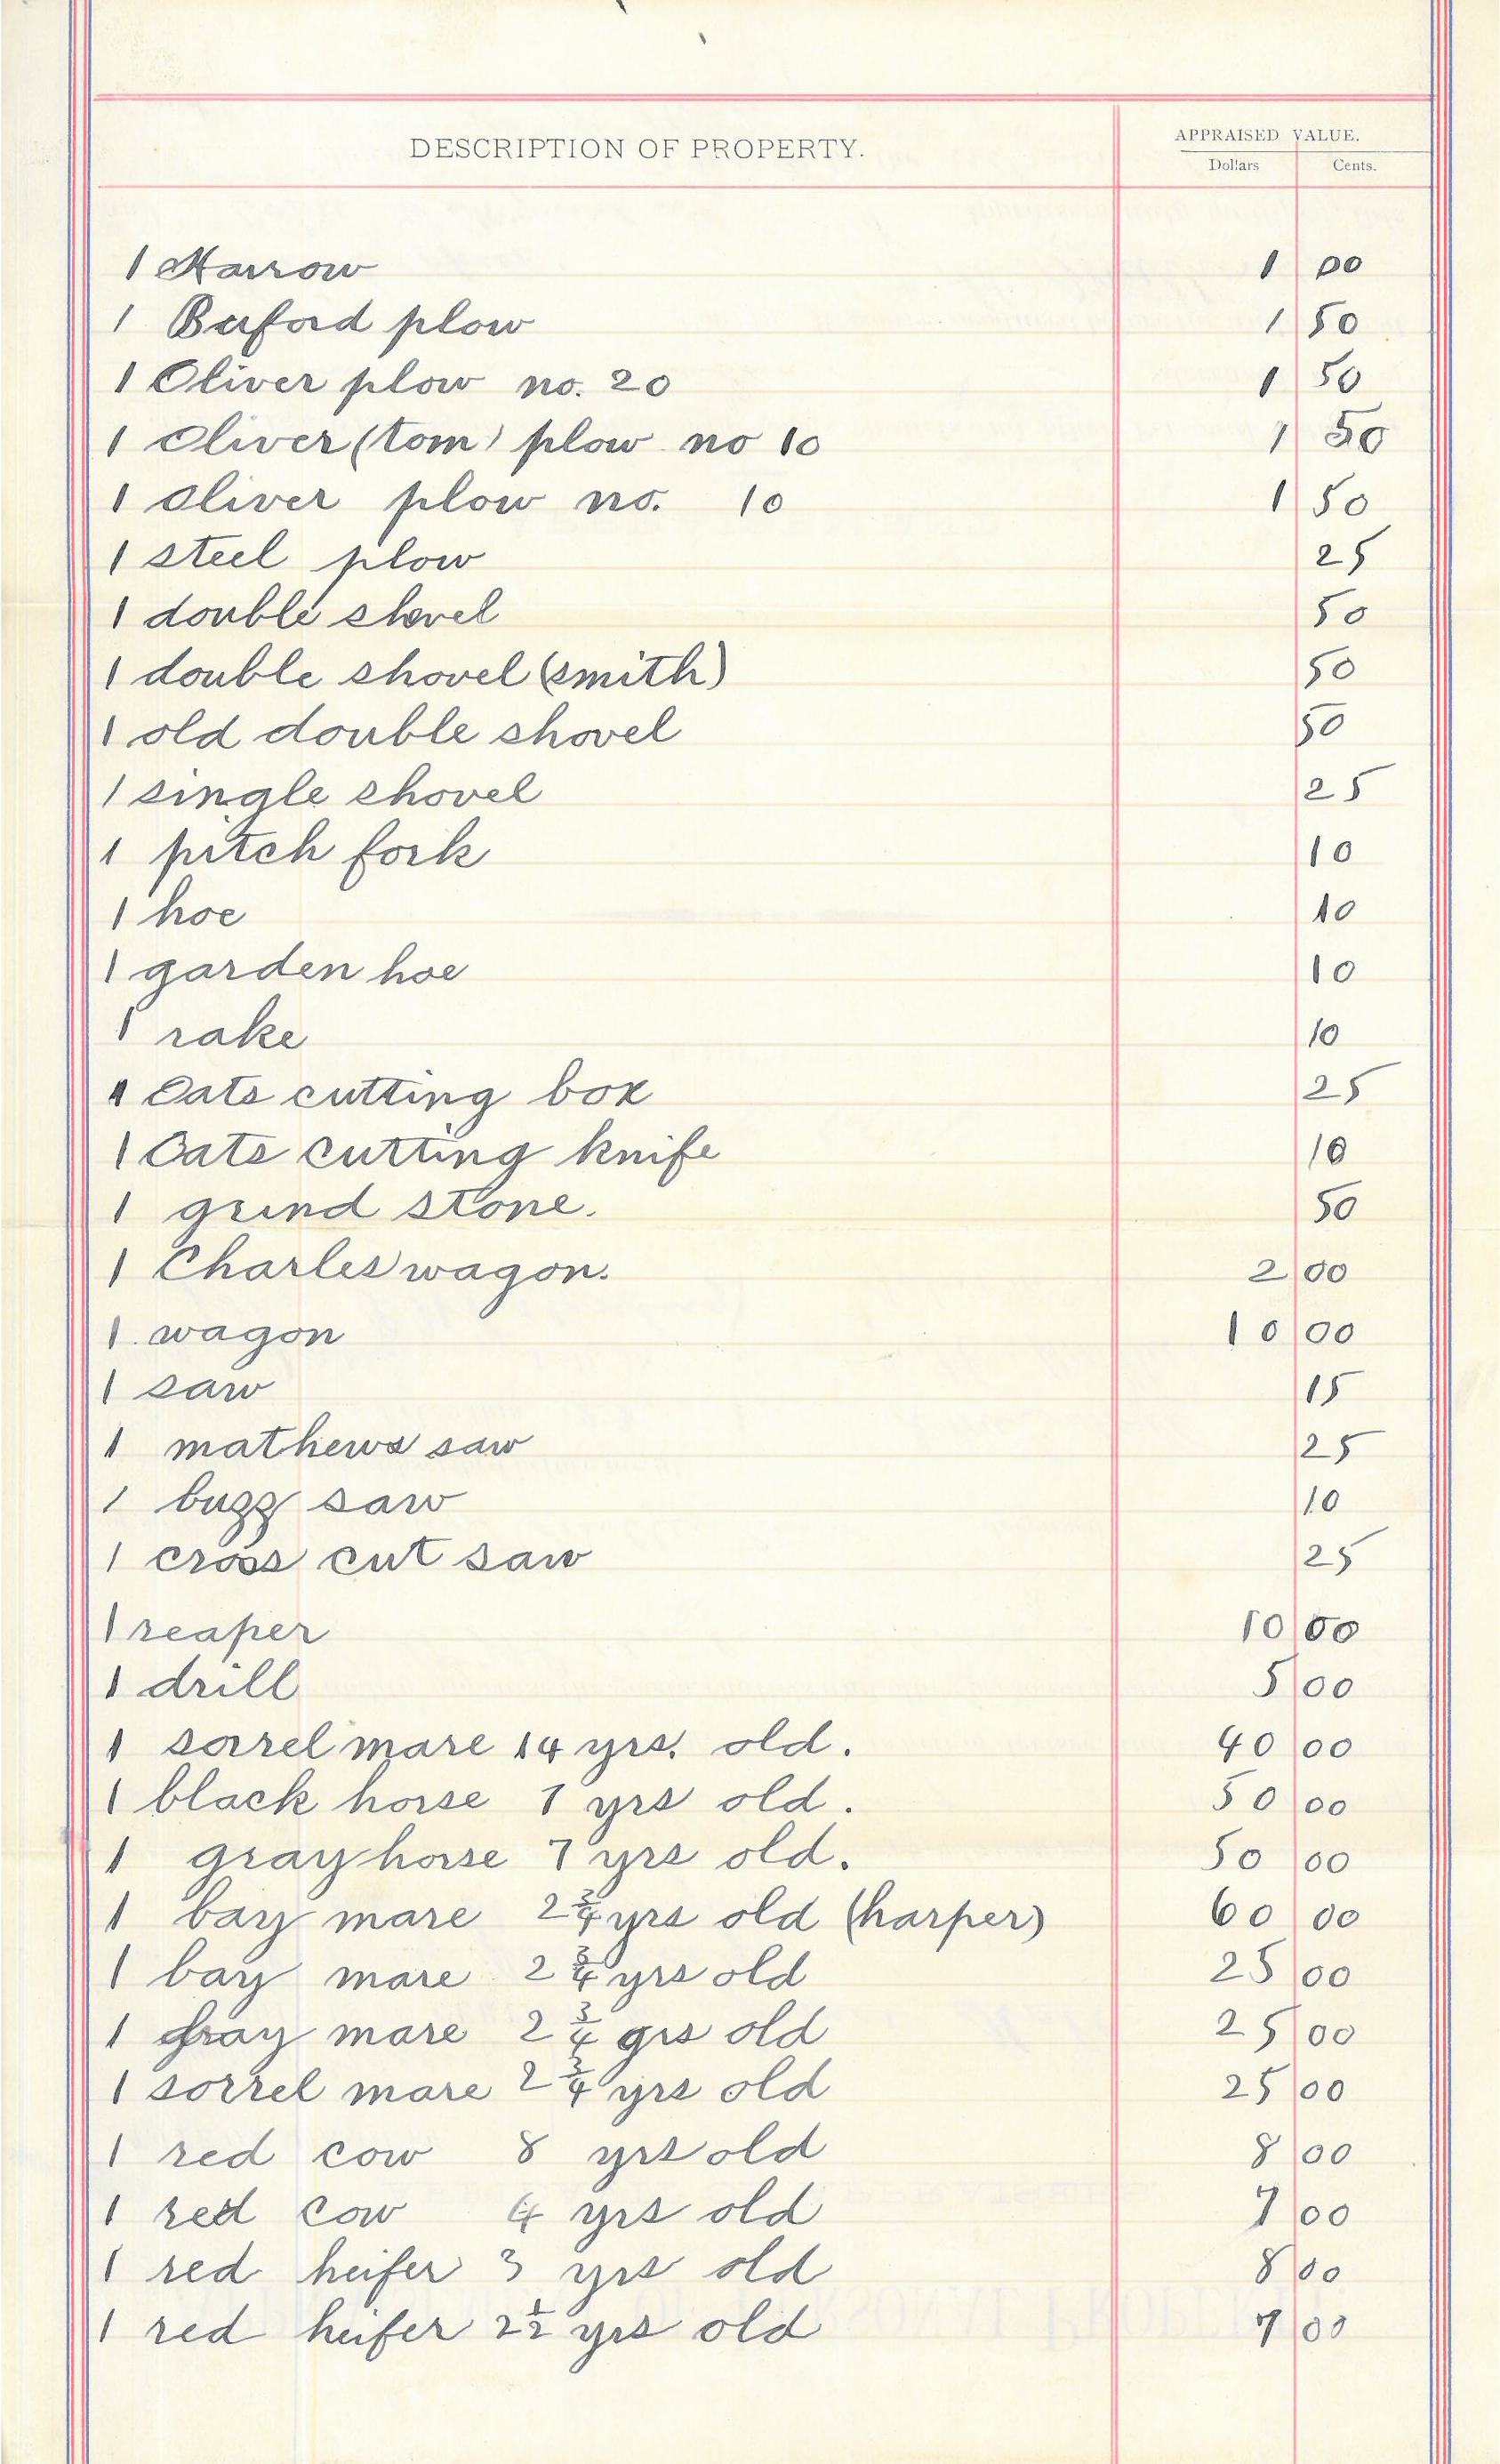 DESCRIPTION OF PROPERTY. APPRAISED VALUE.
Dollars Cents.
1 Harrow 1 00
1 Buford plow 1 50
1 Oliver plow no. 20 1 50
1 Oliver (tom) plow no 10 1 50
1 Oliver plow no. 10 1 50
1 steel plow 25
1 double shovel 50
1 double shovel (smith) 50
1 old double shovel 50
1 single shovel 25
1 pitch fork 10
1 hoe 10
1 garden hoe 10
1 rake 10
1 Oats cutting box 25
1 Oats cutting knife 10
1 grind stone. 50
1 Charles wagon. 2 00
1 wagon 10 00
1 saw 15
1 mathews saw 25
1 buzz saw 10
1 cross cut saw 25
1 reaper 10 00
1 drill 5 00
1 sorrel mare 14 yrs. old. 40 00
1 black horse 7 yrs old. 50 00
1 gray horse 7 yrs old. 50 00
1 bay mare 2 3/4 yrs old (harper) 60 00
1 bay mare 2 3/4 yrs old 25 00
1 gray mare 2 3/4 yrs old 25 00
1 sorrel mare 2 3/4 yrs old 25 00
1 red cow 8 yrs old 8 00
1 red cow 4 yrs old 7 00
1 red heifer 3 yrs old 8 00
1 red heifer 2 1/2 yrs old 7 00